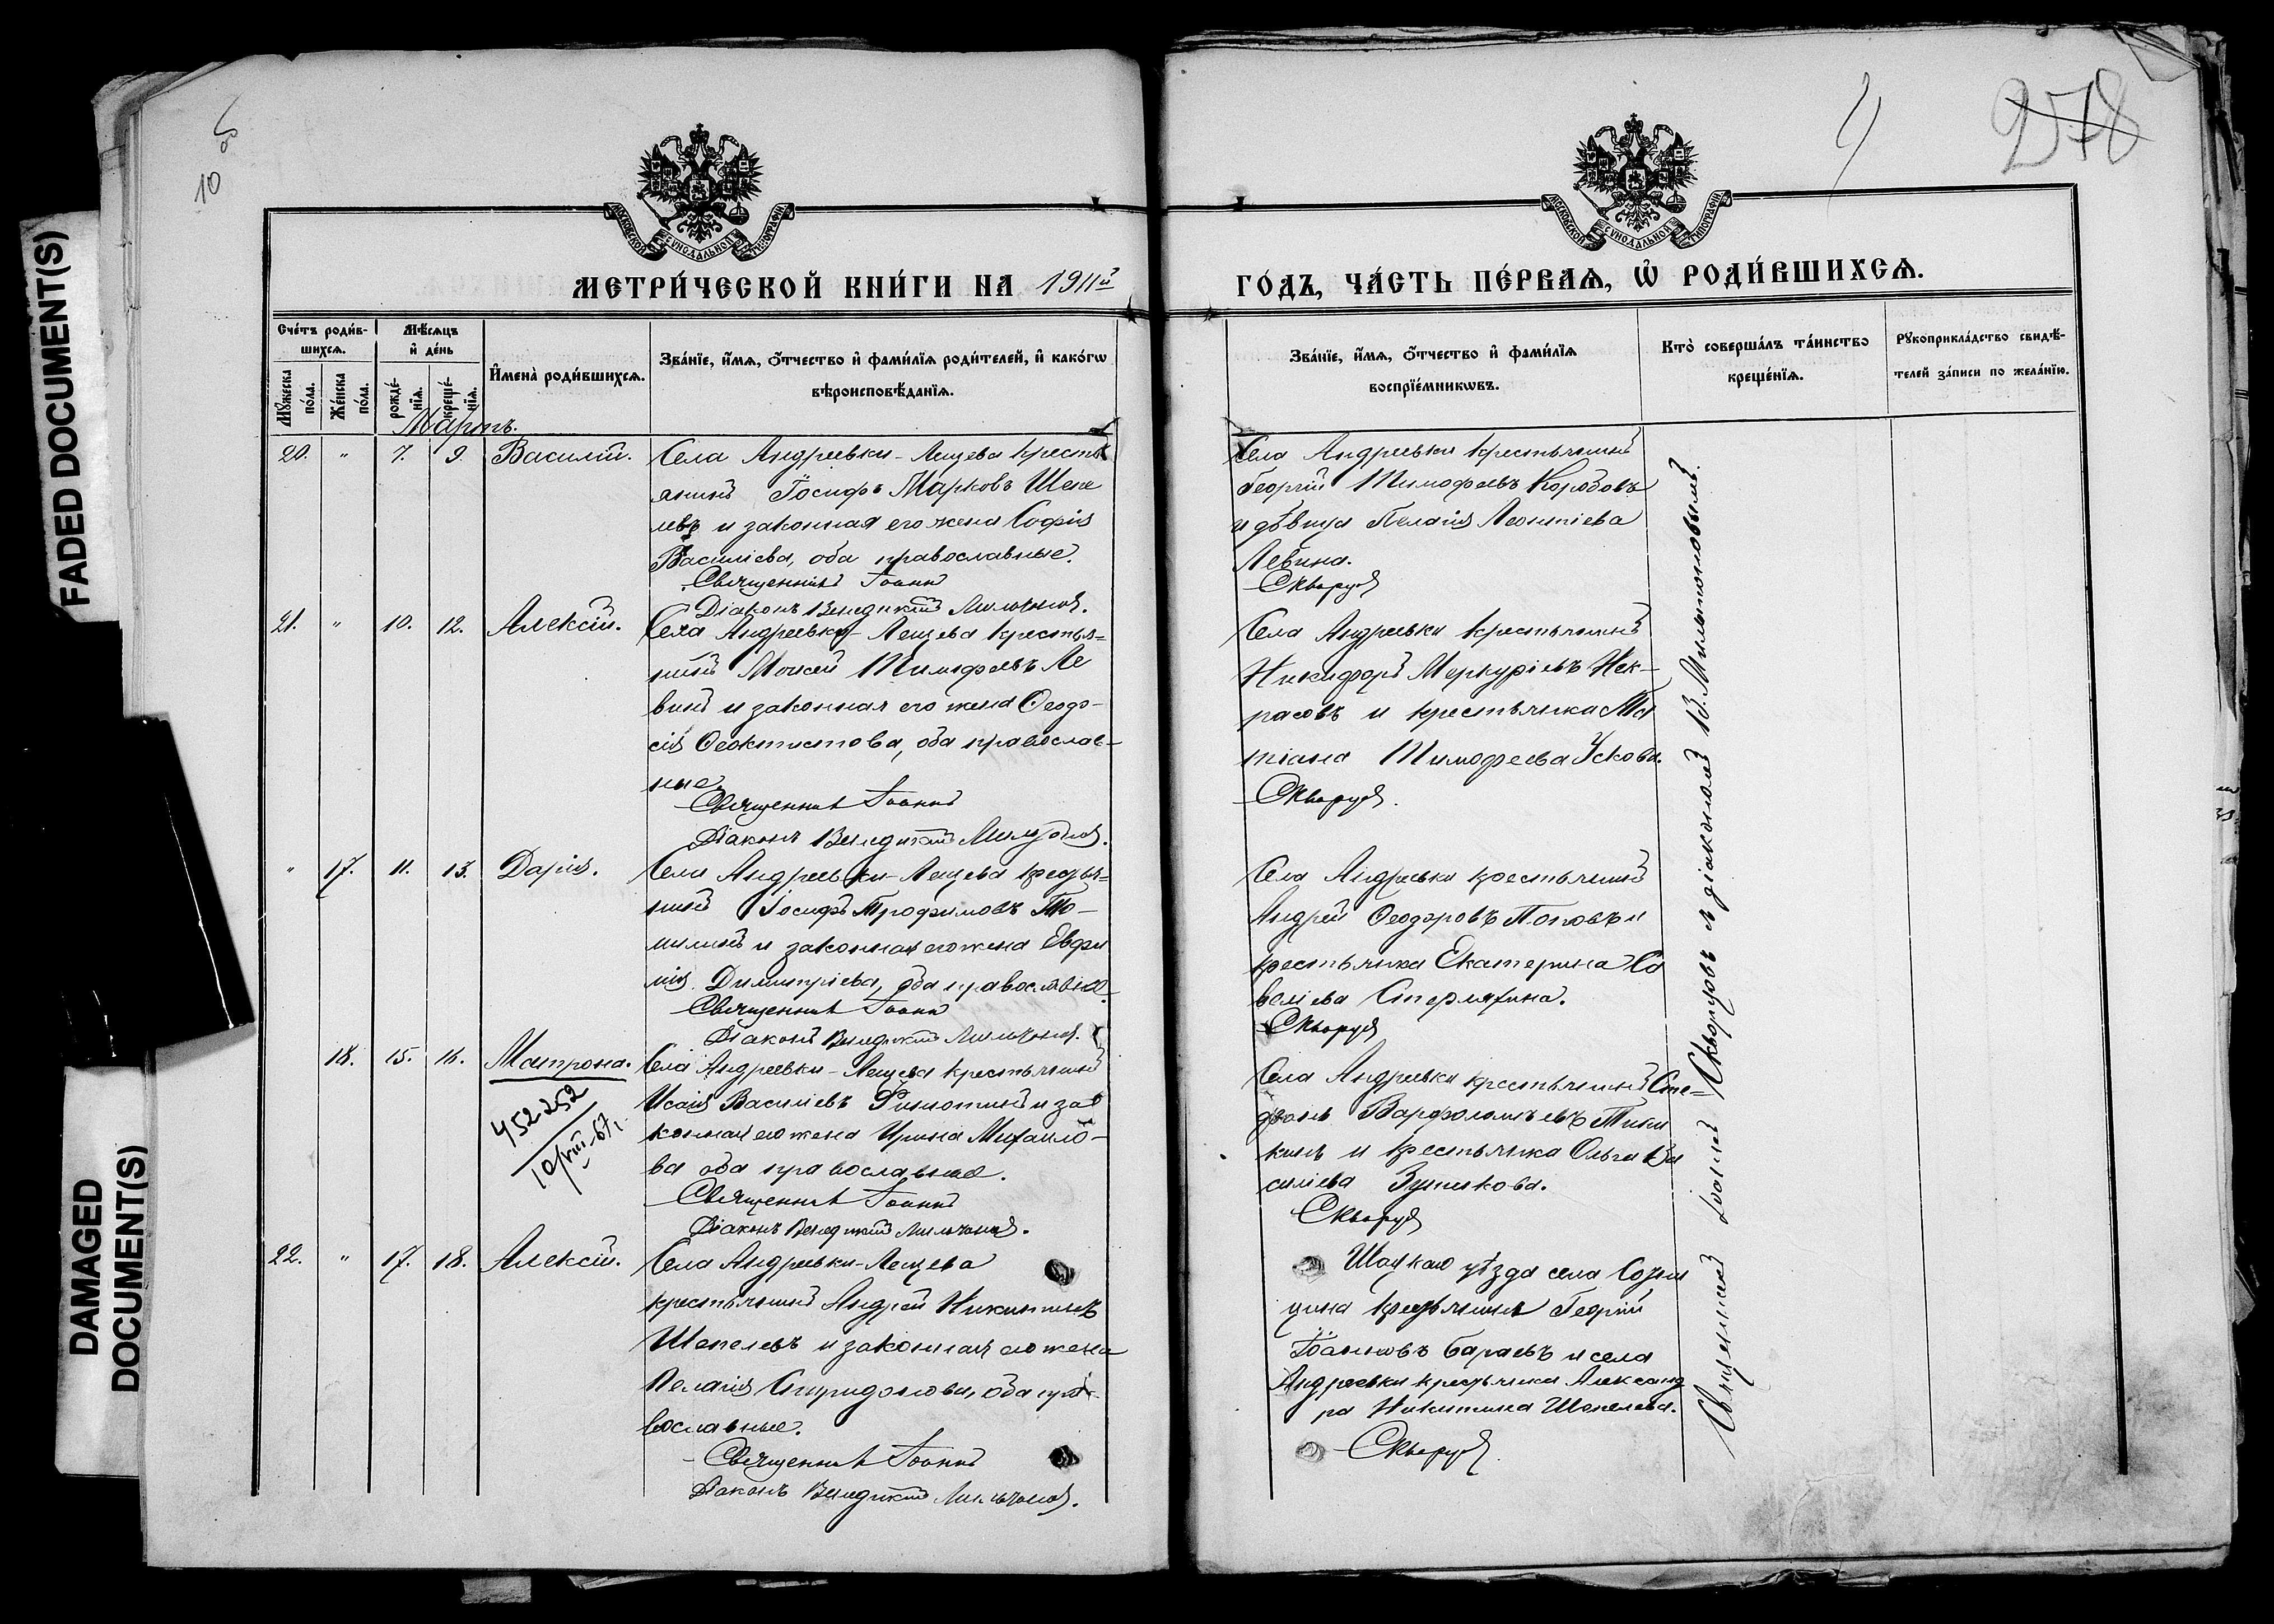 FADED DOCUMENT(S)
DAMAGED DOCUMENT(S)
10
278
МОСКОВСКОЙ СѴНОДАЛЬНОЙ ТИПОГРАФІИ
МОСКОВСКОЙ СѴНОДАЛЬНОЙ ТИПОГРАФІИ
МЕТРИ́ЧЕСКОЙ КНИ́ГИ НА 1911й
ГО́ДЪ, ЧА́СТЬ ПЕ́РВАѦ, Ѡ҆ РОДИ́ВШИХСѦ.
Сче́тъ роди́в-
шихсѧ.
Мꙋ́жеска по́ла.
Же́нска по́ла.
Мѣ́сѧцъ
и҆ де́нь
рожде́-нїѧ.
креще́-нїѧ.
И҆мена̀ роди́вшихсѧ.
Зва́нїе, и҆́мѧ, ѻ҆́тчество и҆ фами́лїѧ роди́телей, и҆ како́гѡ
вѣроисповѣ́данїѧ.
Зва́нїе, и҆́мѧ, ѻ҆́тчество и҆ фами́лїѧ
воспрїе́мникѡвъ.
Кто̀ соверша́лъ та́инство
креще́нїѧ.
Рꙋкоприкла́дство свидѣ́-
телей за́писи по жела́нїю.
Мартъ.
20. " 7. 9. Василій.
Села Андреевки-Лещева кресть
янинъ Іосифъ Марковъ Шепе
левъ и законная его жена Софія
Василіева, оба православные.
Священникъ Іоаннъ
Діаконъ Венедиктъ
Села Андреевки крестьянинъ
Георгій Тимофеевъ Коробовъ
и дѣвица Пелагія Леонтіева
Левина.
21. " 10. 12. Алексій.
Села Андреевки-Лещева крестья=
нинъ Моисей Тимофеевъ Ле
винъ и законная его жена Ѳеодо-
сія Ѳеоктистова, оба православ-
ные.
Священникъ Іоаннъ
Діаконъ Венедиктъ
Села Андреевки крестьянинъ
Никифоръ Меркуріевъ Нек-
расовъ и крестьянка Та
тіана Тимофеева Ускова.
" 17. 11. 13. Дарія.
Села Андреевки-Лещева крестья=
нинъ Іосифъ Трофимовъ То-
милинъ и законная его жена Евфи
мія Димитріева, оба православные.
Священникъ Іоаннъ
Діаконъ Венедиктъ
Села Андреевки крестьянинъ
Андрей Ѳеодоровъ Поповъ и
крестьянка Екатерина Са
веліева Стерлягина.
18. 15. 16. Матрона.
452252
10/VIII-67г.
Села Андреевки-Лещева крестьянинъ
Исаія Василіевъ Филютинъ и за
конная его жена Ирина Михаило-
ва оба православные.
Священникъ Іоаннъ
Діаконъ Венедиктъ
Села Андреевки крестьянинъ Сте-
фанъ Варфоломѣевъ
и крестьянка Ольга Ва
силіева
22. " 17. 18. Алексій.
Села Андреевки-Лещева
крестьянинъ Андрей Никитинъ
Шепелевъ и законная его жена
Пелагія Спиридонова, оба пра-
вославные.
Священникъ Іоаннъ
Діаконъ Венедиктъ
Шацкаго уѣзда села
крестьянинъ Георгій
Іоанновъ Бараевъ и села
Андреевки крестьянка Александ
ра Никитина Шепелева.
Священникъ Іоаннъ Скворцовъ съ діакономъ В.